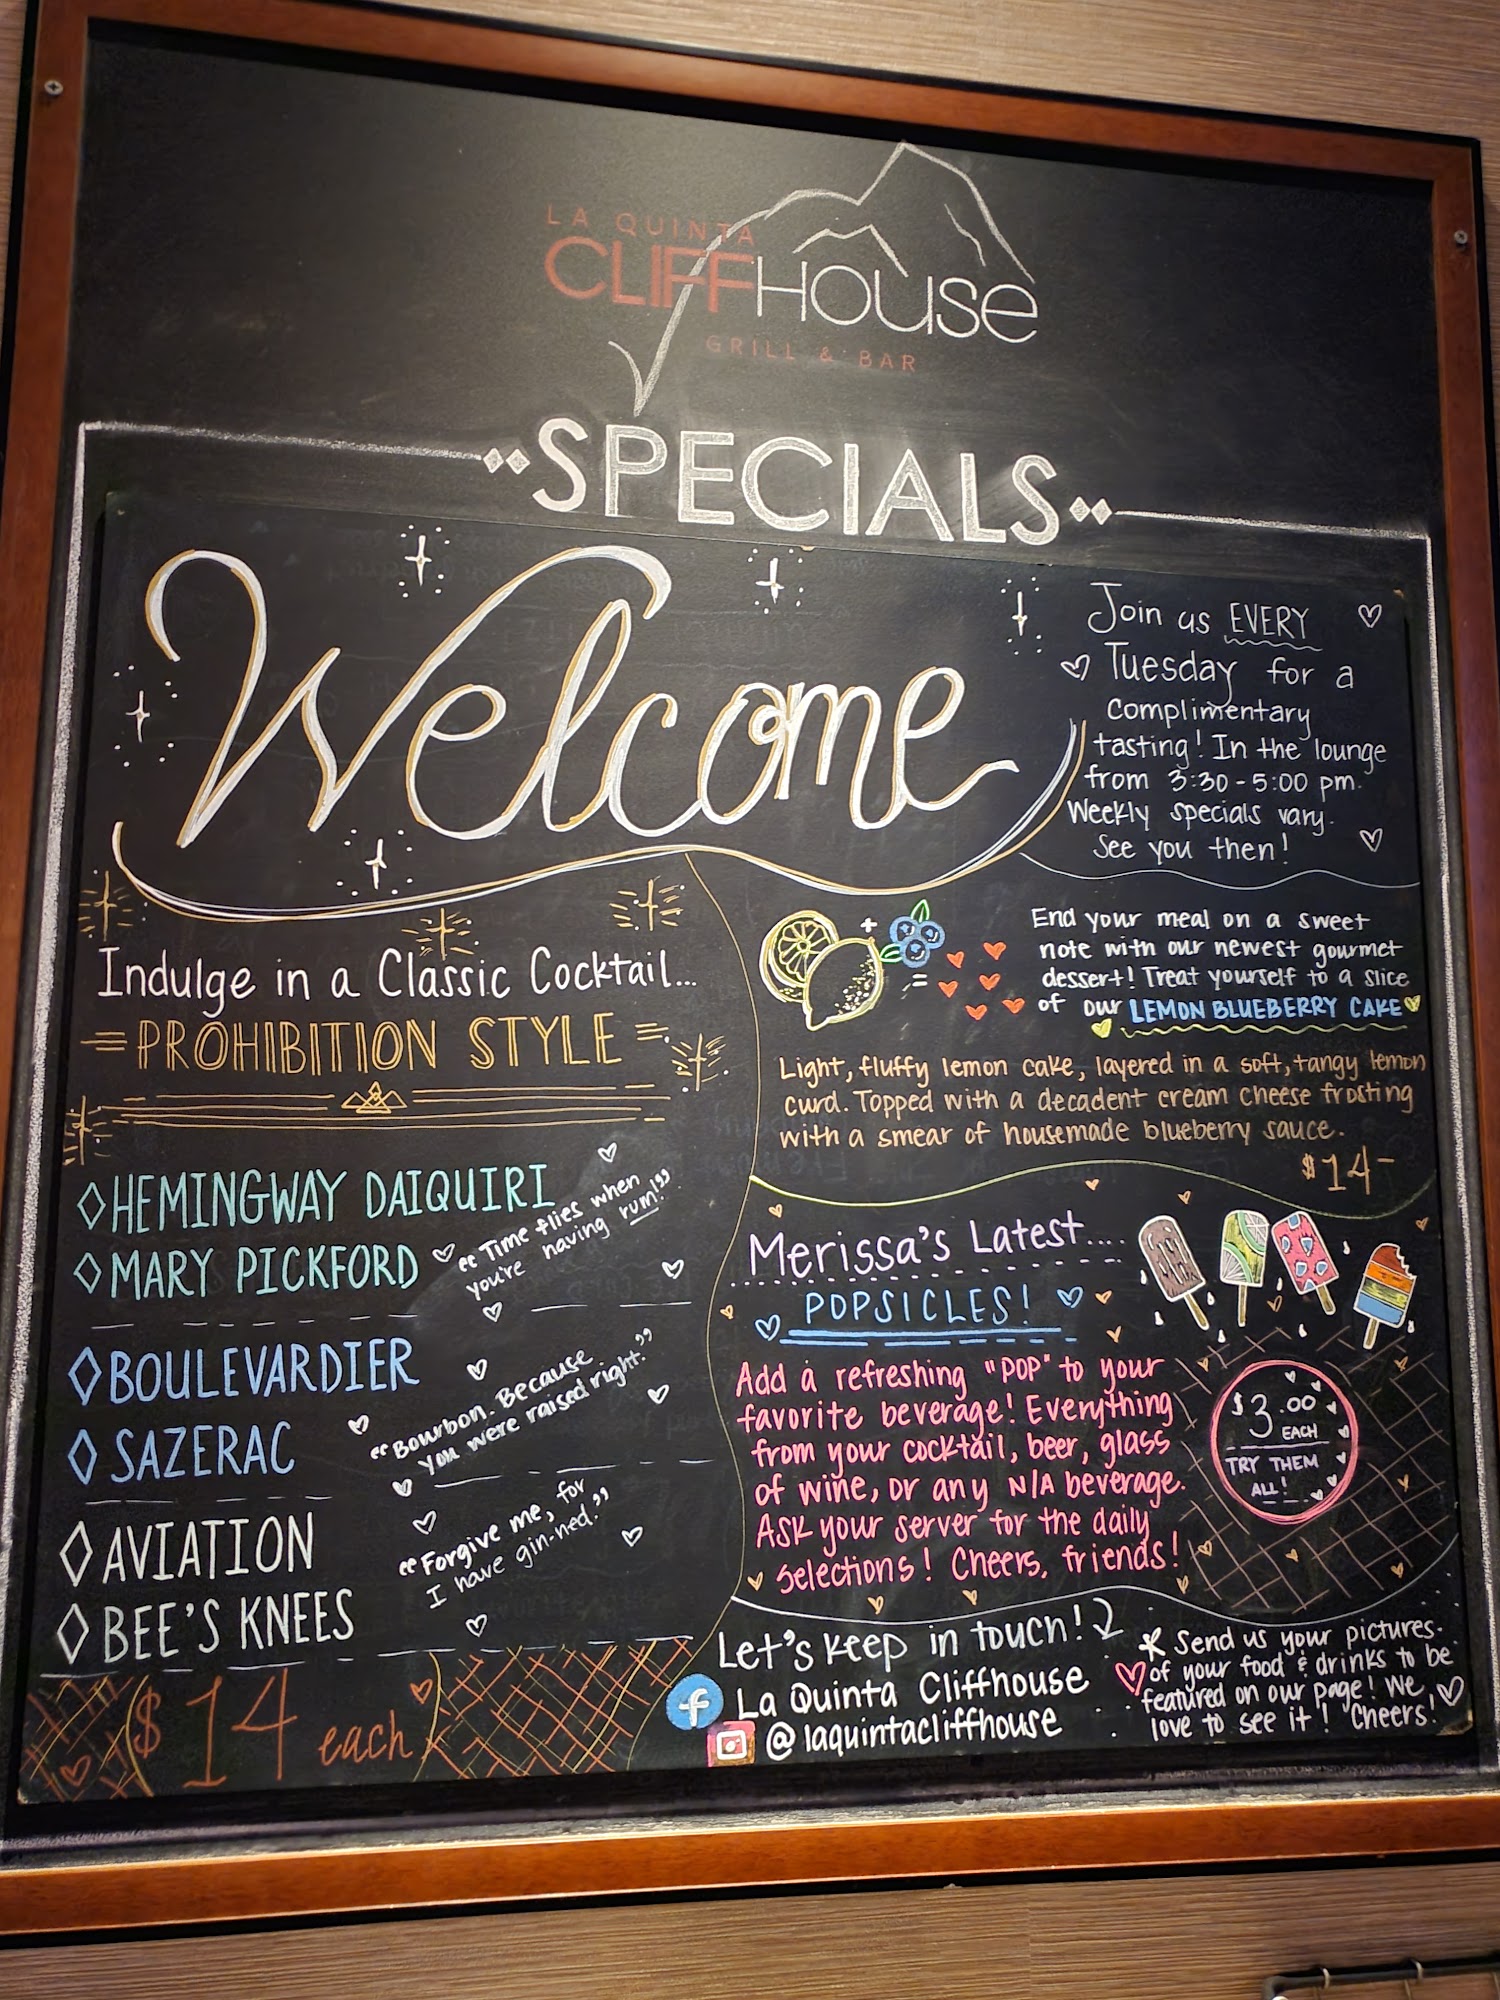 LA QUINTA
CLIFFHOUSE
GRILL & BAR
SPECIALS
Welcome
Join us EVERY
Tuesday for a
complimentary
tasting! In the lounge
from 3:30-5:00 pm.
Weekly specials vary.
See you then!
Indulge in a Classic Cocktail...
=PROHIBITION STYLE=
HEMINGWAY DAIQUIRI
MARY PICKFORD
"Time flies when
you're having rum!"
BOULEVARDIER
SAZERAC
"Bourbon. Because
you were raised right."
AVIATION
BEE'S KNEES
"Forgive me, for
I have gin-ned."
$14 each
+
=
End your meal on a sweet
note with our newest gourmet
dessert! Treat yourself to a slice
of our LEMON BLUEBERRY CAKE
Light, fluffy lemon cake, layered in a soft, tangy lemon
curd. Topped with a decadent cream cheese frosting
with a smear of housemade blueberry sauce.
$14-
Merissa's Latest....
POPSICLES!
Add a refreshing "POP" to your
favorite beverage! Everything
from your cocktail, beer, glass
of wine, or any N/A beverage.
Ask your server for the daily
selections! Cheers, friends!
$3.00
EACH
TRY THEM
ALL!
Let's keep in touch!
f La Quinta Cliffhouse
@laquintacliffhouse
* Send us your pictures
of your food & drinks to be
featured on our page! We
love to see it! Cheers!